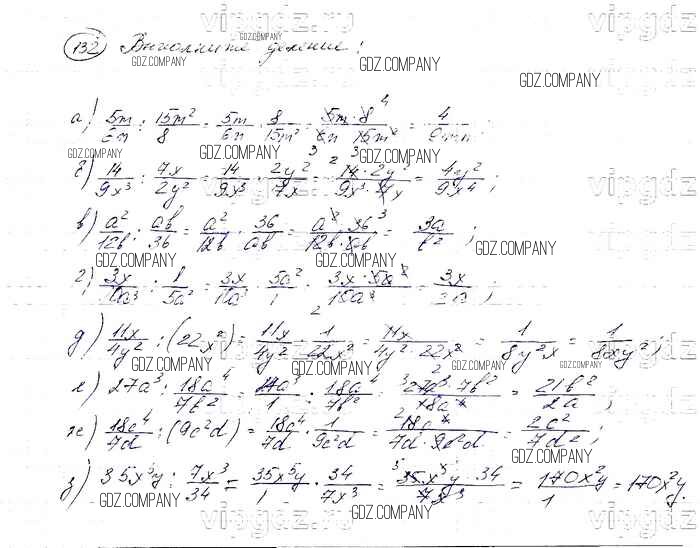 vipgdz.ru vipgdz
132 Выполните деление:
GDZ.COMPANY GDZ.COMPANY GDZ.COMPANY GDZ.COMPANY
а) 5m/6n : 15m²/8 = 5m/6n · 8/15m² = 5m · 8/6n · 15m² = 4/9mn;
GDZ.COMPANY GDZ.COMPANY GDZ.COMPANY
б) 14/9x³ : 7x/2y² = 14/9x³ · 2y²/7x = 14 · 2y²/9x³ · 7x = 4y²/9x⁴;
в) a²/12b : ab/36 = a²/12b · 36/ab = a² · 36/12b · ab = 3a/b²;
GDZ.COMPANY GDZ.COMPANY GDZ.COMPANY
г) 3x/10a³ : 1/5a² = 3x/10a³ · 5a²/1 = 3x · 5a²/10a³ = 3x/2a;
д) 11x/4y² : (22x²) = 11x/4y² · 1/22x² = 11x/4y² · 22x² = 1/8y²x = 1/8xy²;
GDZ.COMPANY GDZ.COMPANY GDZ.COMPANY GDZ.COMPANY
е) 27a³ : 18a⁴/7b² = 27a³/1 · 18a⁴/7b² = 27a³ · 7b²/18a⁴ = 21b²/2a;
ж) 18c⁴/7d : (9c²d) = 18c⁴/7d · 1/9c²d = 18c⁴/7d · 9c²d = 2c²/7d²;
GDZ.COMPANY GDZ.COMPANY GDZ.COMPANY
з) 35x⁵y : 7x³/34 = 35x⁵y/1 · 34/7x³ = 35x⁵y · 34/7x³ = 170x²y/1 = 170x²y.
GDZ.COMPANY GDZ.COMPANY